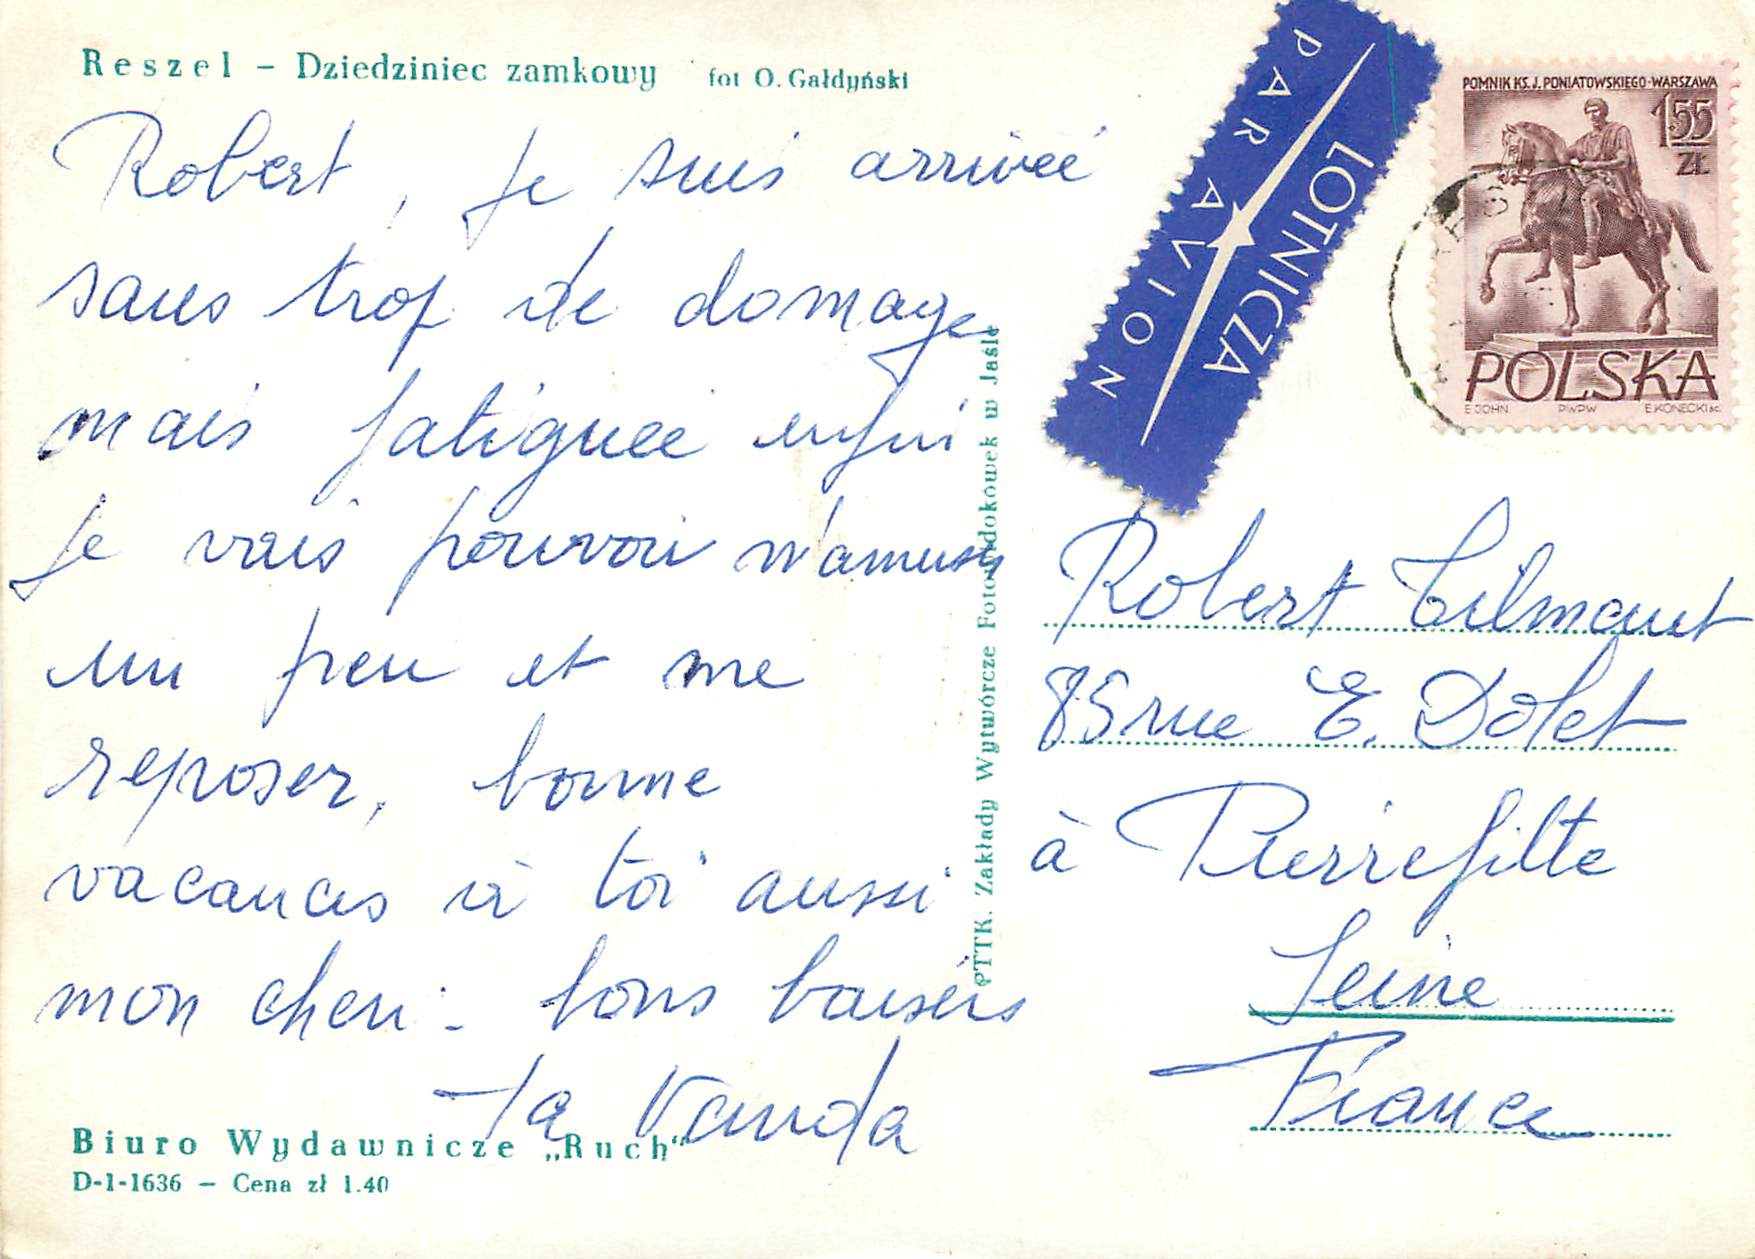 Reszel – Dziedziniec zamkowy fot O. Gałdyński
Robert, je suis arrivée
sans trop de domage
mais fatiguée enfin
je vais pouvoir m'amuser
un peu et me
reposer, bonne
vacances à toi aussi
mon cheri. bons baisers
ta Vanda
Biuro Wydawnicze „Ruch"
D-1-1636 – Cena zł 1.40
PTTK. Zakłady Wytwórcze Fotowidokówek w Jaśle
LOTNICZA
PAR AVION
POMNIK KS. J. PONIATOWSKIEGO-WARSZAWA
1,55
ZŁ
POLSKA
E. JOHN PWPW E. KONECKI sc.
Robert Tilmant
85 rue E. Dolet
à Pierrefitte
Seine
France